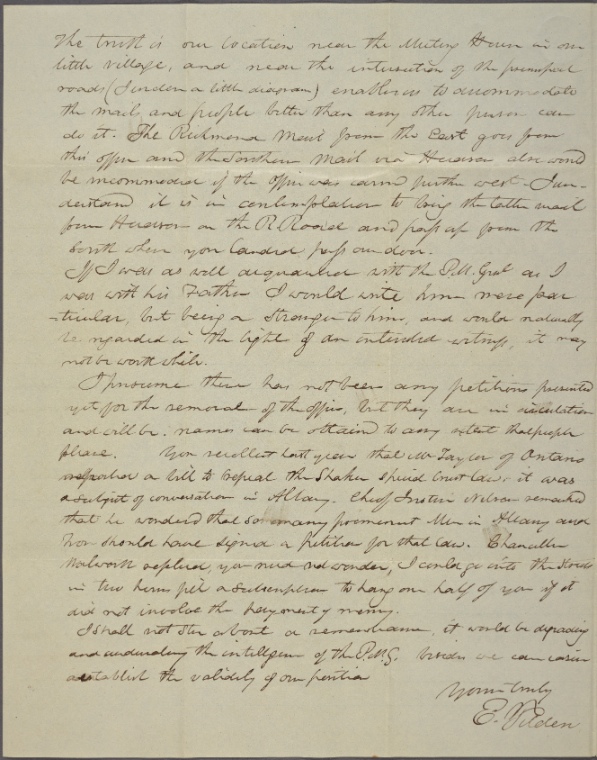 The truth is our location near the Meeting House in our
little village, and near the intersection of the principal
roads (I enclose a little diagram) enables us to accommodate
the mail, and people better than any other person can
do it. The Richmond Mail from the East goes from
this office and the Southern Mail via Hudson also would
be incommoded if the office was carried further west. I un-
derstand it is in contemplation to bring the latter mail
from Hudson on the R. Road and pass up from the
South when you landed pass our door.
If I was as well acquainted with the P.M. Genl as I
was with his Father I would write him more par
-ticular, but being a Stranger to him, and would naturally
be regarded in the light of an interested witness, it may
not be worth while.
I presume there has not been any petitions presented
yet for the removal of the office, but they are in circulation
and will be. names can be obtained to any extent that people
please. You recollect last year that Mr Taylor of Ontario
a bill to repeal the Shaker Special Trust Law. it was
a subject of conversation in Albany. Chief Justice Nelson remarked
that he wondered that so many prominent Men in Albany and
Troy should have signed a petition for that law. Chancellor
Walworth replied, you need not wonder, I could go into the Streets
in two hours get a subscription to hang one half of you if it
did not involve the payment of money.
I shall not stir about a remonstrance, it would be degrading
and undervaluing the intelligence of the P.M.G. besides we can easier
establish the validity of our position
Yours truly
E. Tilden